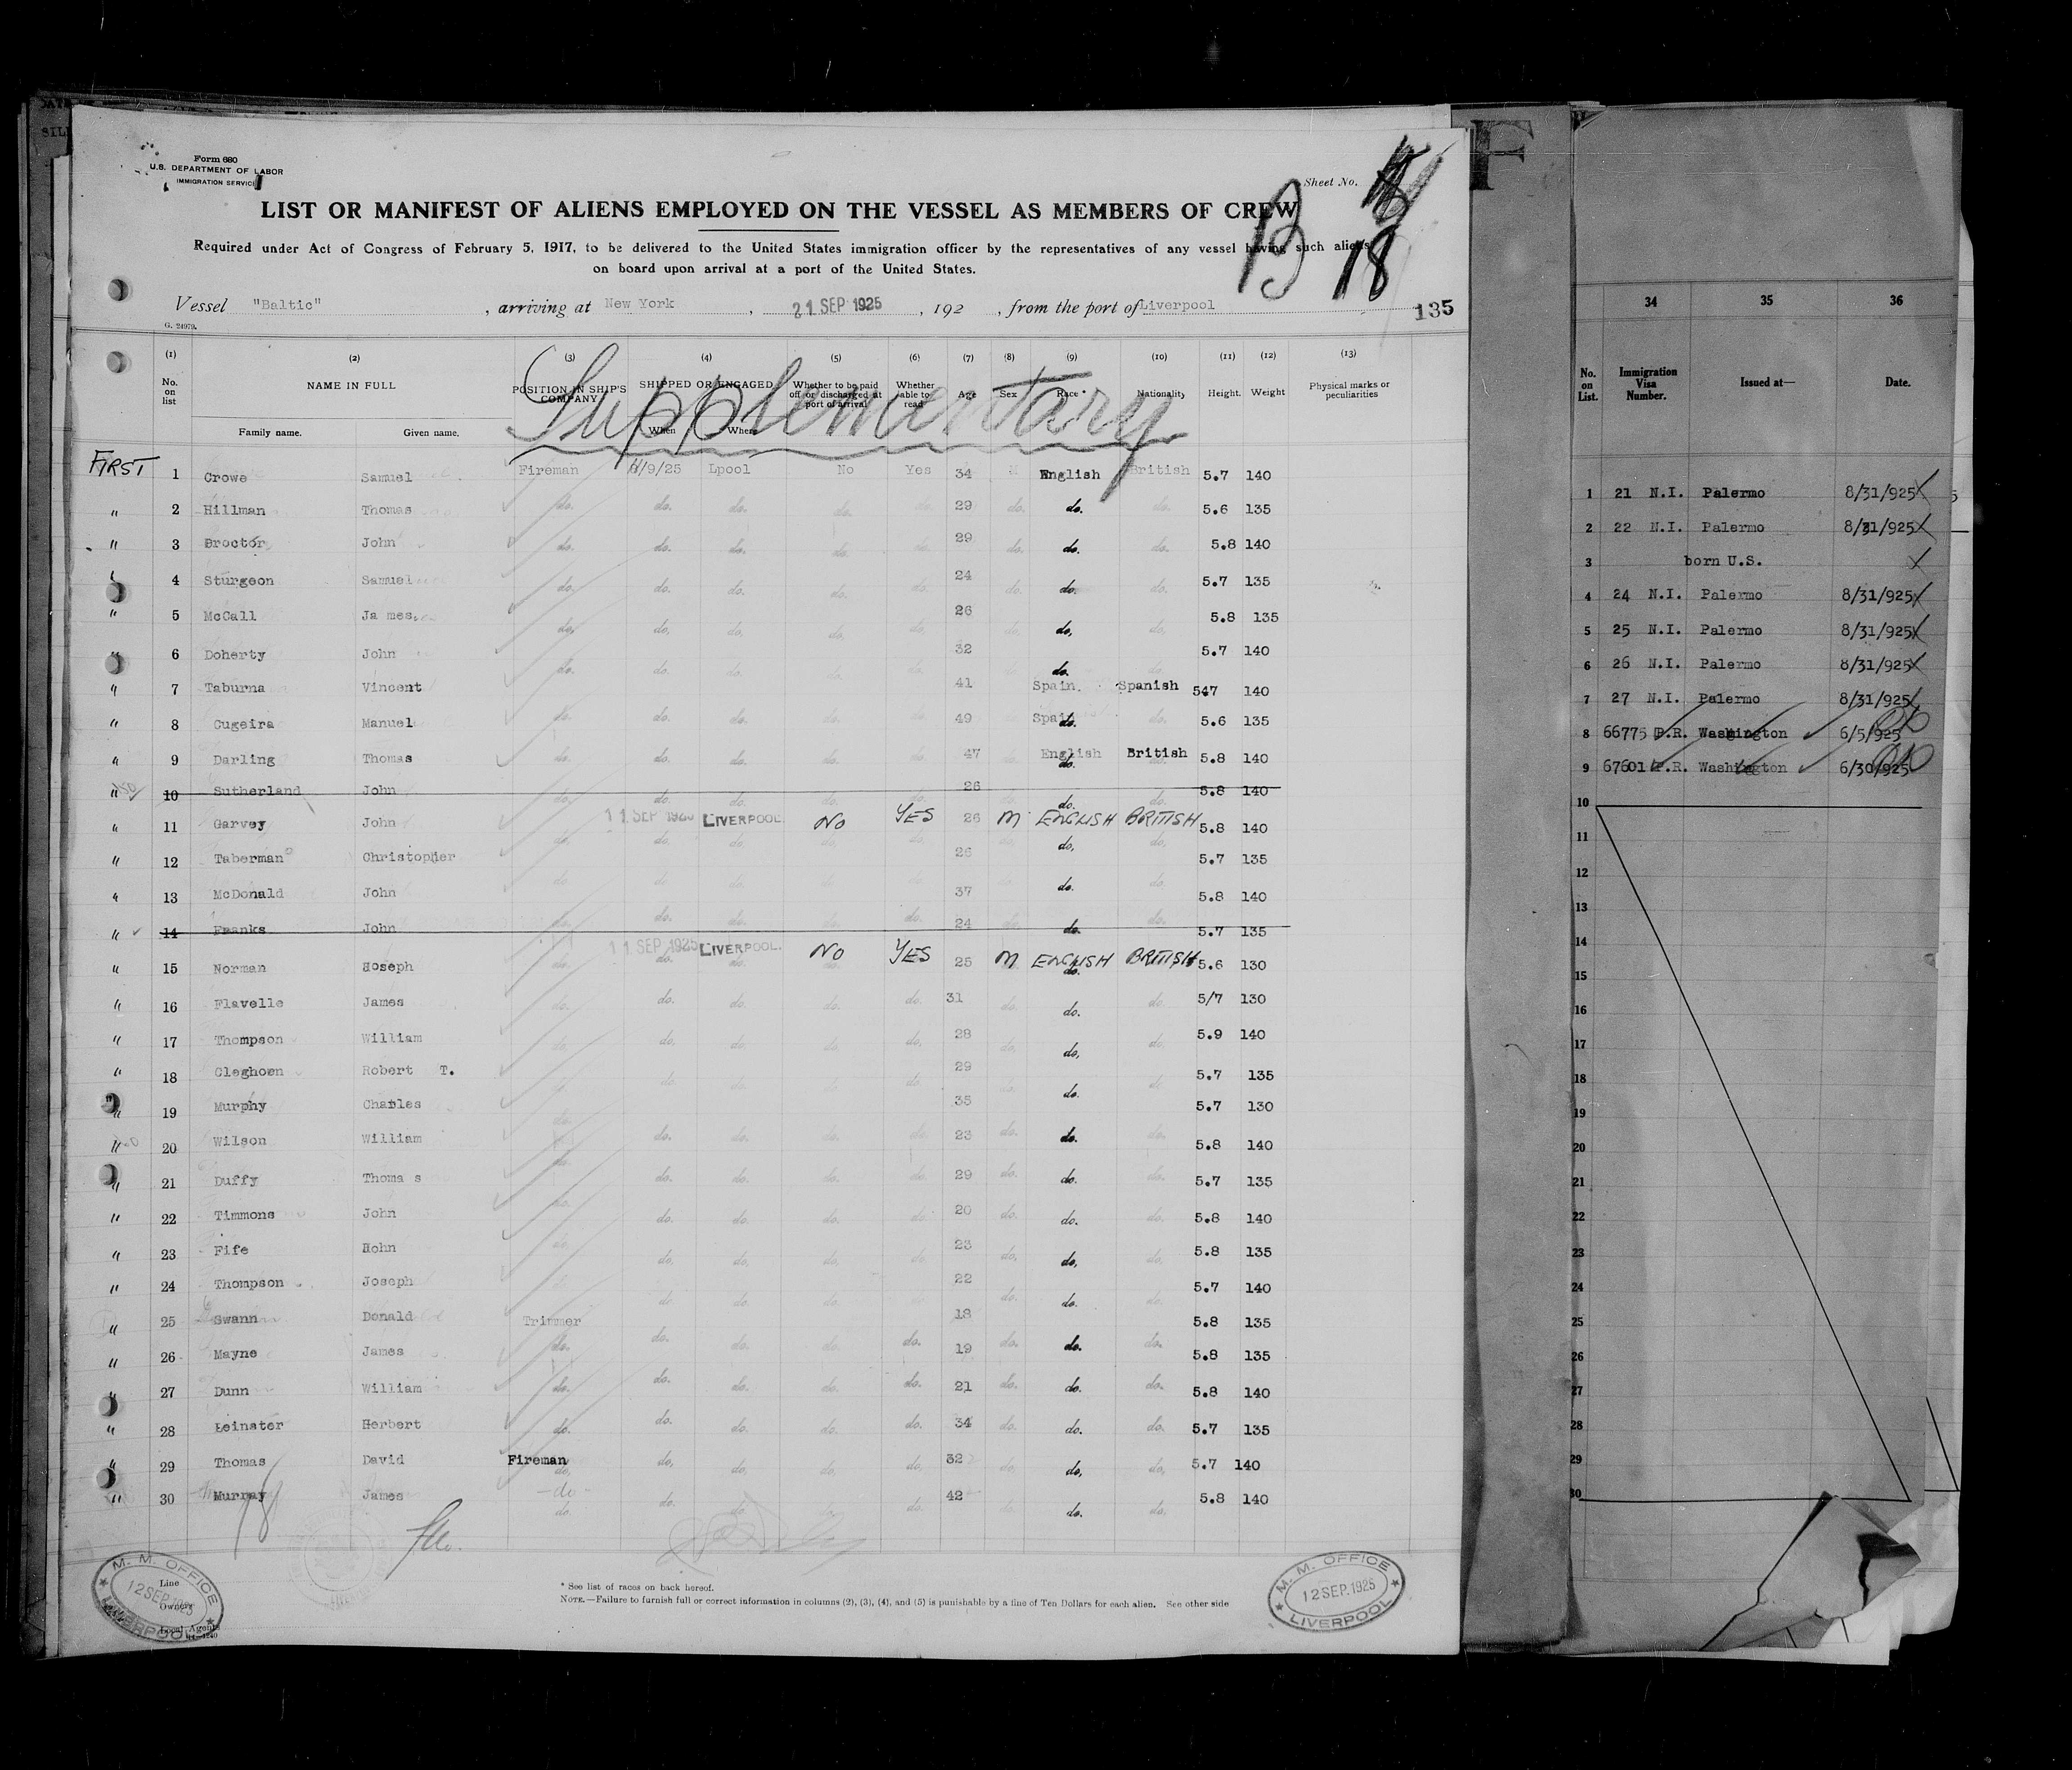 Form 680
U.S. DEPARTMENT OF LABOR
IMMIGRATION SERVICE
Sheet No.
B 18
LIST OR MANIFEST OF ALIENS EMPLOYED ON THE VESSEL AS MEMBERS OF CREW
Required under Act of Congress of February 5, 1917, to be delivered to the United States immigration officer by the representatives of any vessel having such aliens
on board upon arrival at a port of the United States.
Vessel "Baltic", arriving at New York, 21 SEP 1925, 192 , from the port of Liverpool
135
G. 24979.
(1) (2) (3) (4) (5) (6) (7) (8) (9) (10) (11) (12) (13)
No. on list NAME IN FULL POSITION IN SHIP'S COMPANY SHIPPED OR ENGAGED Whether to be paid off or discharged at port of arrival Whether able to read Age Sex Race* Nationality Height. Weight Physical marks or peculiarities
Family name. Given name. When Where
Supplementary
FIRST 1 Crowe Samuel Fireman /9/25 Lpool No Yes 34 M English British 5.7 140
" 2 Hillman Thomas do. do. do. do. do. 29 do. do. do. 5.6 135
" 3 Proctor John do. do. do. do. do. 29 do. do. do. 5.8 140
" 4 Sturgeon Samuel do. do. do. do. do. 24 do. do. do. 5.7 135
" 5 McCall Ja mes. do. do. do. do. do. 26 do. do. do. 5.8 135
" 6 Doherty John do. do. do. do. do. 32 do. do. do. 5.7 140
" 7 Taburna Vincent 41 Spain. Spanish 547 140
" 8 Cugeira Manuel do. do. do. do. do. 49 do. Spain do. 5.6 135
" 9 Darling Thomas do. do. do. do. do. 47 do. English British 5.8 140
" 10 Sutherland John do. do. do. do. do. 26 do. do. do. 5.8 140
" 11 Garvey John 11 SEP 1925 LIVERPOOL NO YES 26 M ENGLISH BRITISH 5.8 140
" 12 Taberman Christopher do. do. do. do. do. 26 do. do. do. 5.7 135
" 13 McDonald John do. do. do. do. do. 37 do. do. do. 5.8 140
" 14 Franks John do. do. do. do. do. 24 do. do. do. 5.7 135
" 15 Norman Hoseph 11 SEP 1925 LIVERPOOL. NO YES 25 M ENGLISH BRITISH 5.6 130
" 16 Flavelle James do. do. do. do. do. 31 do. do. do. 5/7 130
" 17 Thompson William do. do. do. do. do. 28 do. do. do. 5.9 140
" 18 Cleghorn Robert T. do. do. do. do. do. 29 do. do. do. 5.7 135
" 19 Murphy Charles 35 5.7 130
" 20 Wilson William do. do. do. do. do. 23 do. do. do. 5.8 140
" 21 Duffy Thoma s do. do. do. do. do. 29 do. do. do. 5.7 135
" 22 Timmons John do. do. do. do. do. 20 do. do. do. 5.8 140
" 23 Fife Hohn do. do. do. do. do. 23 do. do. do. 5.8 135
" 24 Thompson Joseph do. do. do. do. 22 do. do. do. 5.7 140
" 25 Swann Donald Trimmer 18 5.8 135
" 26 Mayne James do. do. do. do. do. 19 do. do. do. 5.8 135
" 27 Dunn William do. do. do. do. do. 21 do. do. do. 5.8 140
" 28 Leinster Herbert do. do. do. do. do. 34 do. do. do. 5.7 135
" 29 Thomas David Fireman do. do. do. do. 32 do. do. do. 5.7 140
" 30 Murray James -do- do. do. do. do. 42 do. do. do. 5.8 140
M. M. OFFICE
12 SEP. 1925
LIVERPOOL
Line
Owners
Local Agents
* See list of races on back hereof.
NOTE.—Failure to furnish full or correct information in columns (2), (3), (4), and (5) is punishable by a fine of Ten Dollars for each alien. See other side
M. M. OFFICE
12 SEP. 1925
LIVERPOOL
F
34 35 36
No. on List. Immigration Visa Number. Issued at— Date.
1 21 N.I. Palermo 8/31/925
2 22 N.I. Palermo 8/31/925
3 born U.S.
4 24 N.I. Palermo 8/31/925
5 25 N.I. Palermo 8/31/925
6 26 N.I. Palermo 8/31/925
7 27 N.I. Palermo 8/31/925
8 66775 P.R. Washington 6/5/925
9 67601 P.R. Washington 6/30/925
10
11
12
13
14
15
16
17
18
19
20
21
22
23
24
25
26
27
28
29
30